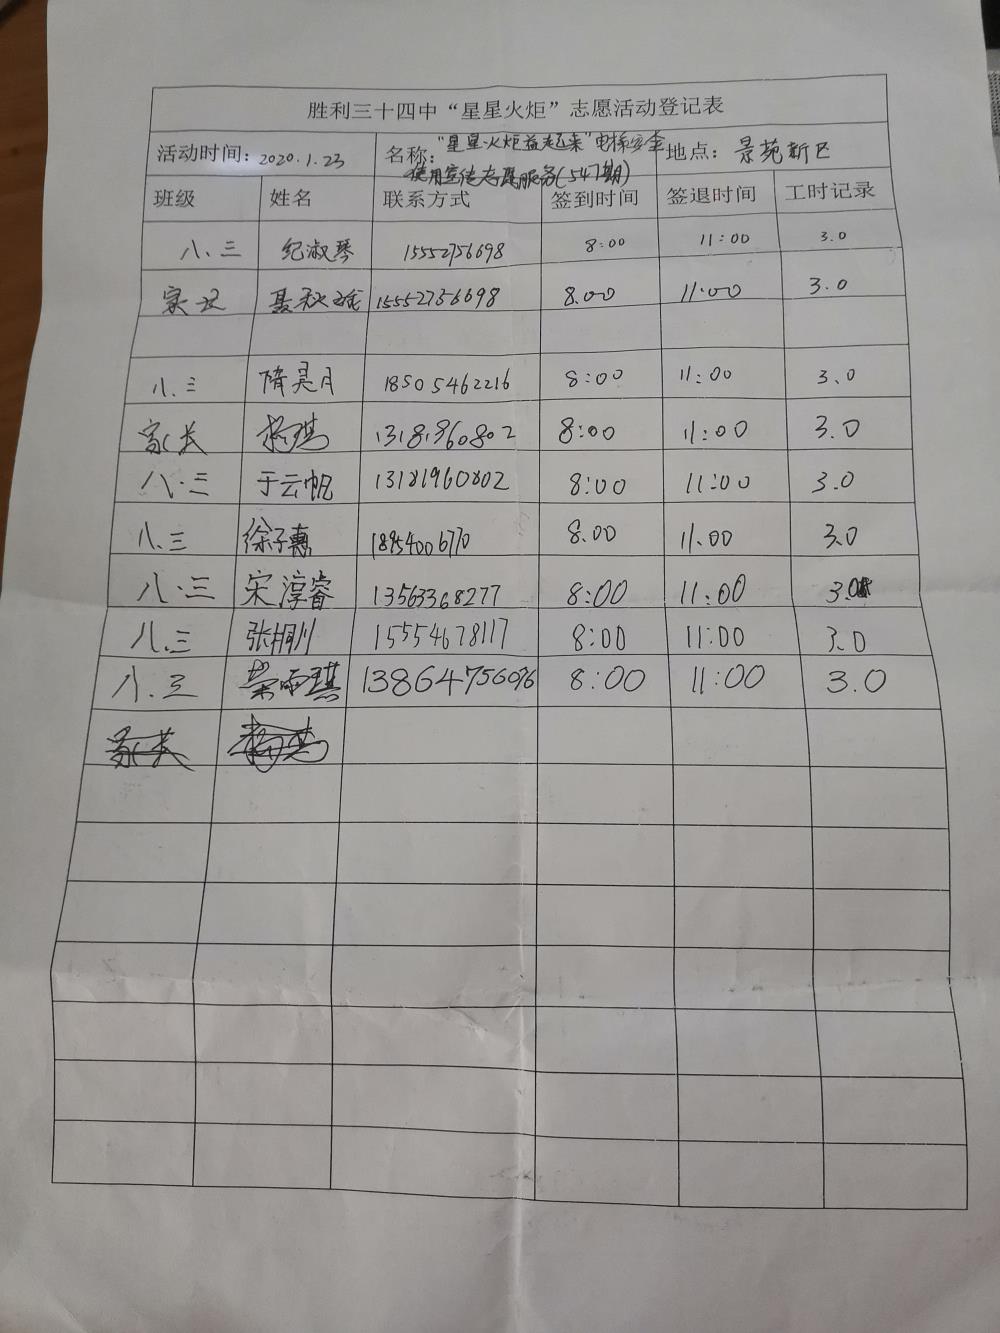 胜利三十四中“星星火炬”志愿活动登记表
活动时间：2020.1.23 名称：“星星火炬益起来”电梯安全使用宣传志愿服务（547期） 地点：景苑新区
班级 姓名 联系方式 签到时间 签退时间 工时记录
八.三 纪淑琴 15552756698 8:00 11:00 3.0
家长 15552756698 8.00 11:00 3.0
八.三 隋昊月 18505462216 8:00 11:00 3.0
家长 杨琪 13181960802 8:00 11:00 3.0
八.三 于云帆 13181960802 8:00 11:00 3.0
八.三 徐子惠 18954006770 8.00 11.00 3.0
八.三 宋淳睿 13563368277 8:00 11:00 3.0
八.三 张桐川 15554678117 8:00 11:00 3.0
八.三 荣雨琪 13864756096 8:00 11:00 3.0
家长